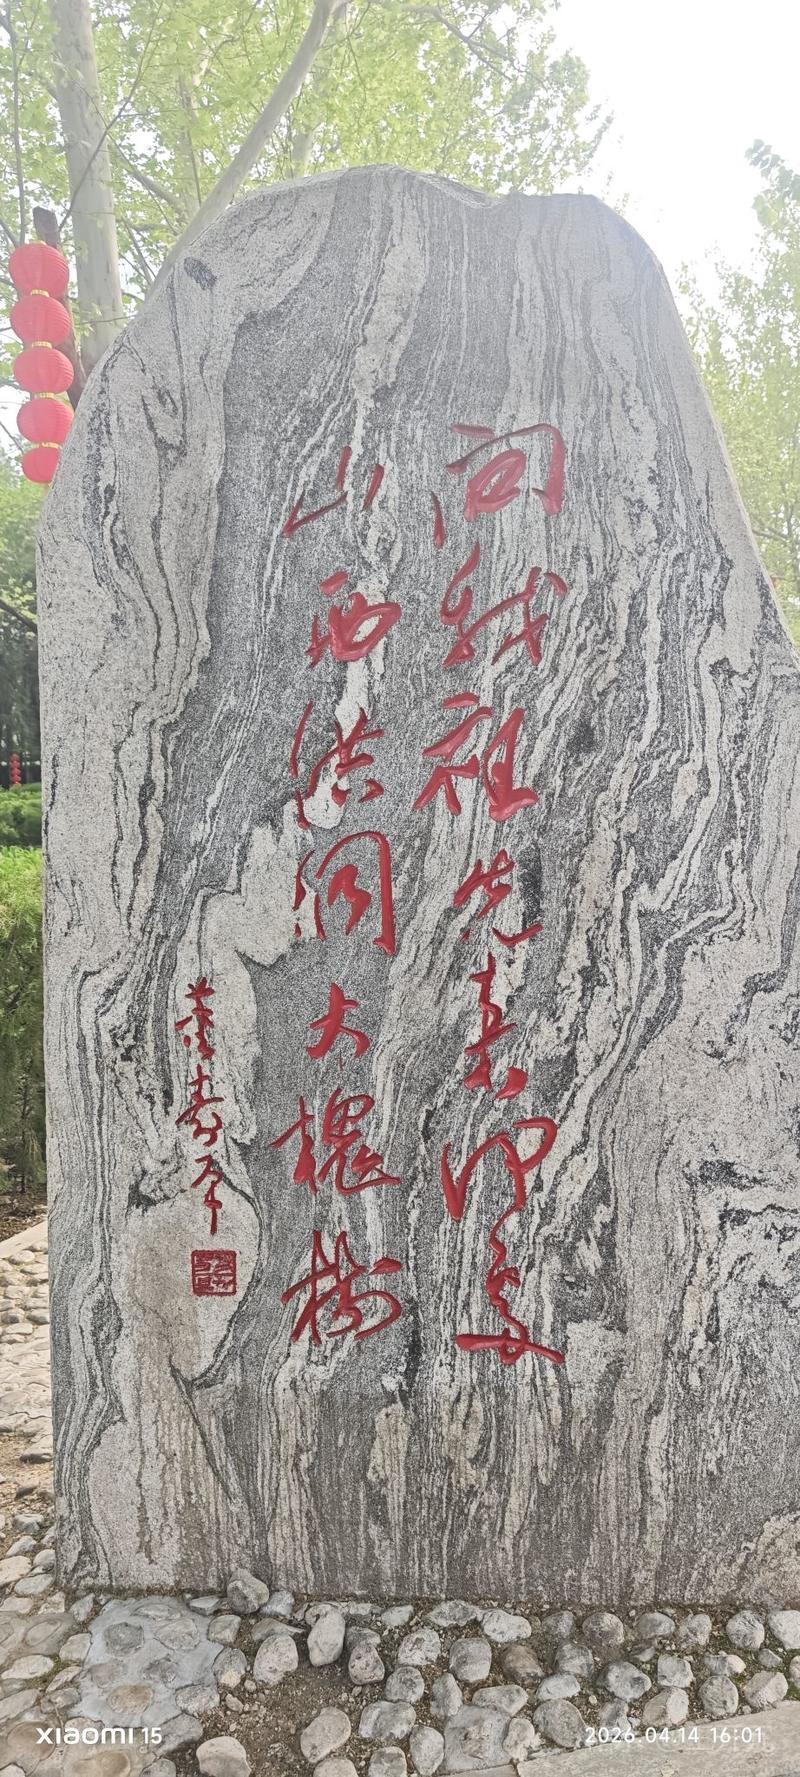 问我祖先来何处
山西洪洞大槐树
董寿平
xiaomi 15
2026.04.14 16:01